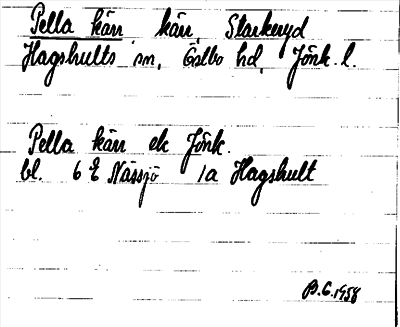 Pella kärr, kärr, Starkeryd
Hagshults sn, Östbo hd, Jönk. l.
Pella kärr ek Jönk.
bl. 6 E Nässjö 1a Hagshult
B.G. 1958